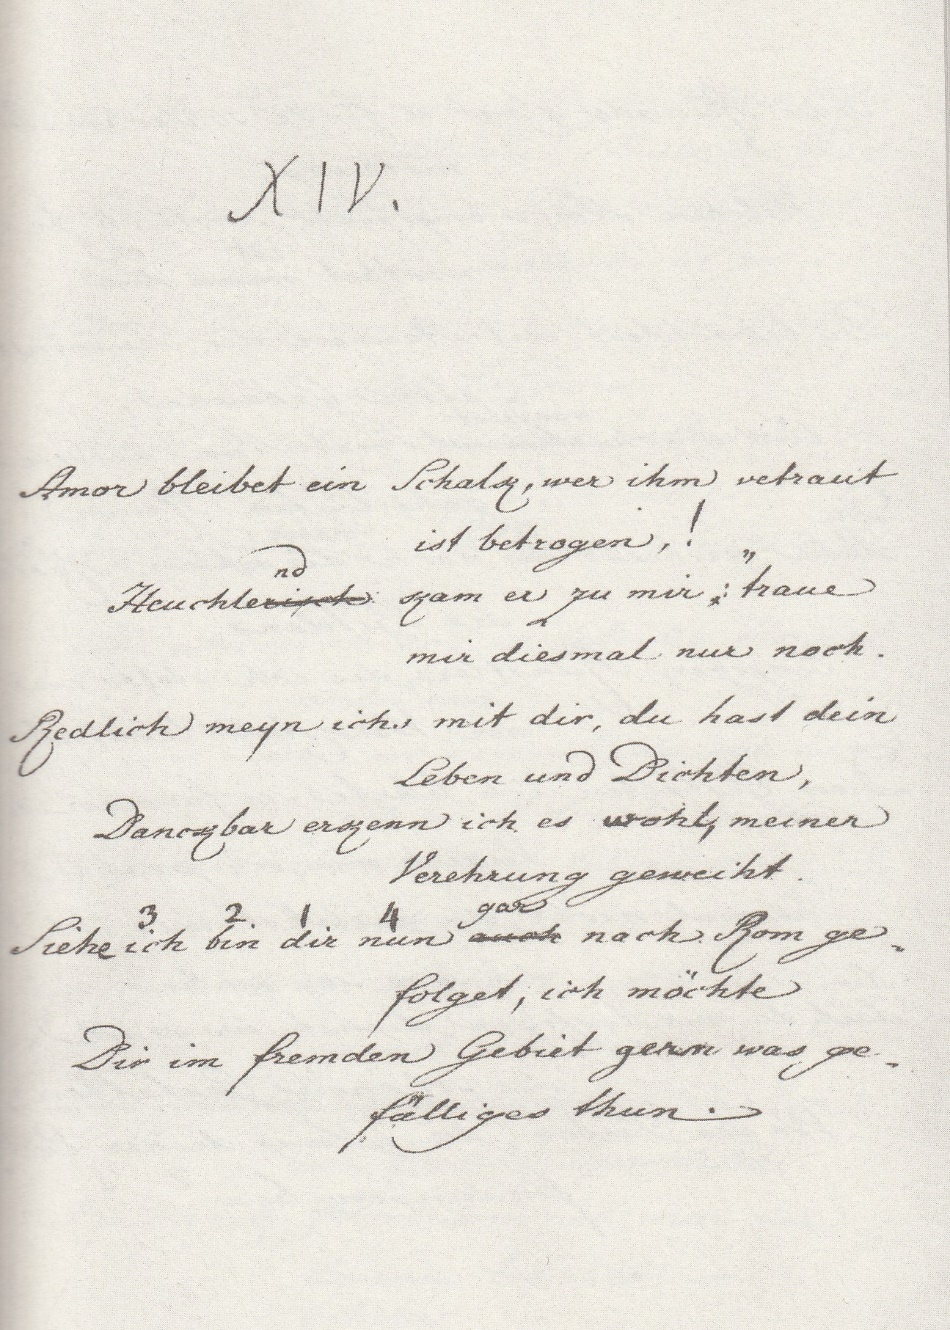 XIV.
Amor bleibet ein Schalk, wer ihm vetraut
ist betrogen, !
nd
Heuchlerisch kam er zu mir: „traue
mir diesmal nur noch.
Redlich meyn ich, mit dir, du hast dein
Leben und Dichten,
Danckbar erkenn ich es wohl, meiner
Verehrung geweiht.
3 2 1 4 gar
Siehe ich bin dir nun auch nach Rom ge-
folget, ich möchte
Dir im fremden Gebiet gern was ge-
fälliges thun.